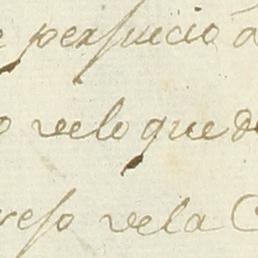 e perjuicio a
o velo que de
reso vela C